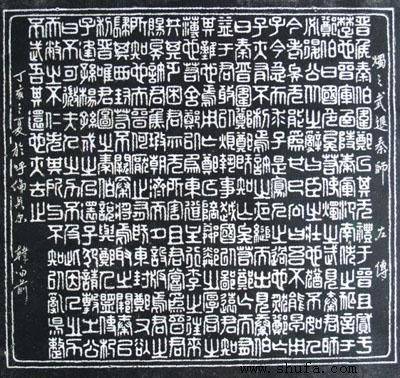 燭之武退秦師 左傳
晉侯秦伯圍鄭以其無禮于晉且貳于
楚也晉軍函陵秦軍氾南佚之狐言于
鄭伯曰國危矣若使燭之武見秦君師
必退公從之辭曰臣之壯也猶不如人
今老矣無能爲也已公曰吾不能早用
子今急而求子是寡人之過也然鄭亡
子亦有不利焉許之夜縋而出見秦伯
曰秦晉圍鄭鄭既知亡矣若亡鄭而有
益于君敢以煩執事越國以鄙遠君知
其難也焉用亡鄭以陪鄰鄰之厚君之
薄也若舍鄭以爲東道主行李之往來
共其乏困君亦無所害且君嘗爲晉君
賜矣許君焦瑕朝濟而夕設版焉君之
所知也夫晉何厭之有既東封鄭又欲
肆其西封若不闕秦將焉取之闕秦以
利晉唯君圖之秦伯說與鄭人盟使杞
子逢孫楊孫戍之乃還子犯請擊之公
曰不可微夫人之力不及此因人之力
而敝之不仁失其所與不知以亂易整
不武吾其還也亦去之
丁亥之夏於呼倫貝爾 韓向前
www.shufa.com